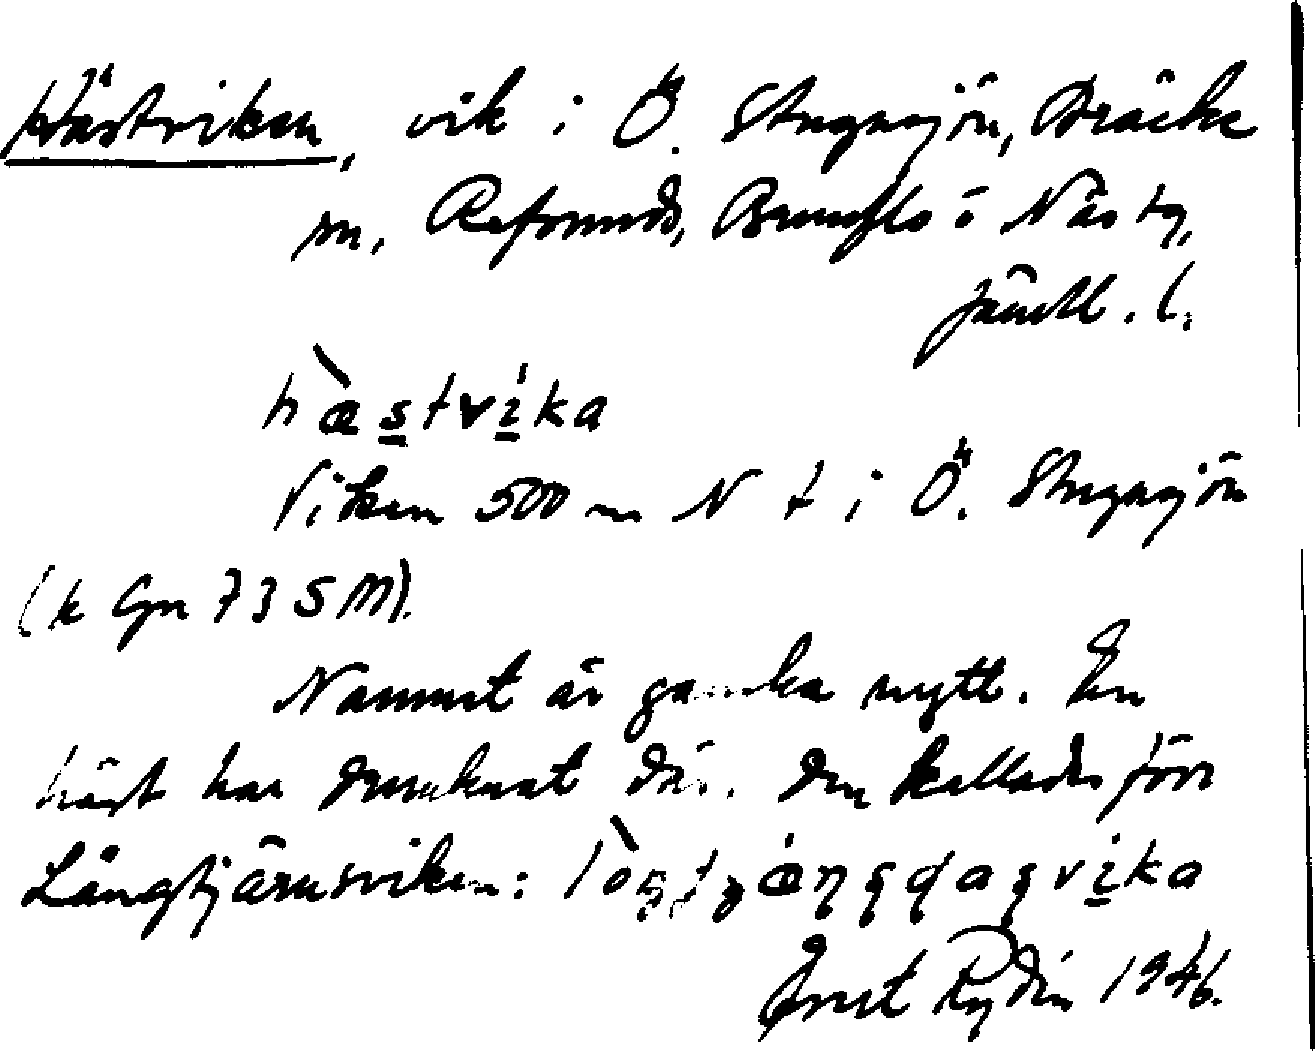 Hästviken, vik i Ö. Stugusjön, Bräcke
sn, Refsunds, Brunflo o Näs tg,
Jämtl. l.
hæstvika
Viken 500 m N t i Ö. Stugusjön
(k Gn 73 5 M).
Namnet är ganska nytt. En
häst har drunknat där. Den kallades förr
Långtjärnsviken:
Ernst Rydén 1946.